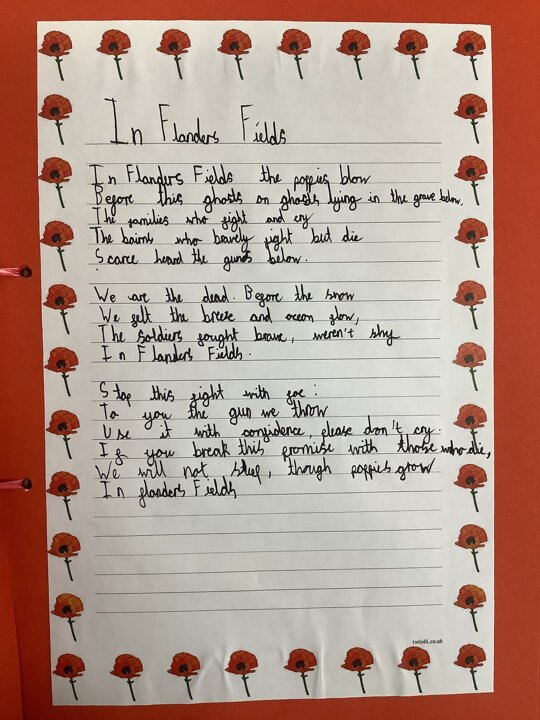 In Flanders Fields
In Flanders Fields the poppies blow
Before this ghosts on ghosts lying in the grave below,
The families who fight and cry
The bairns who bravely fight but die
Scarce heard the guns below.
We are the dead. Before the snow
We felt the breeze and ocean flow,
The soldiers fought brave, weren't shy
In Flanders Fields.
Stop this fight with foe:
To you the gun we throw
Use it with confidence, please don't cry.
If you break this promise with those who die,
We will not sleep, though poppies grow
In flanders Fields
twinkl.co.uk